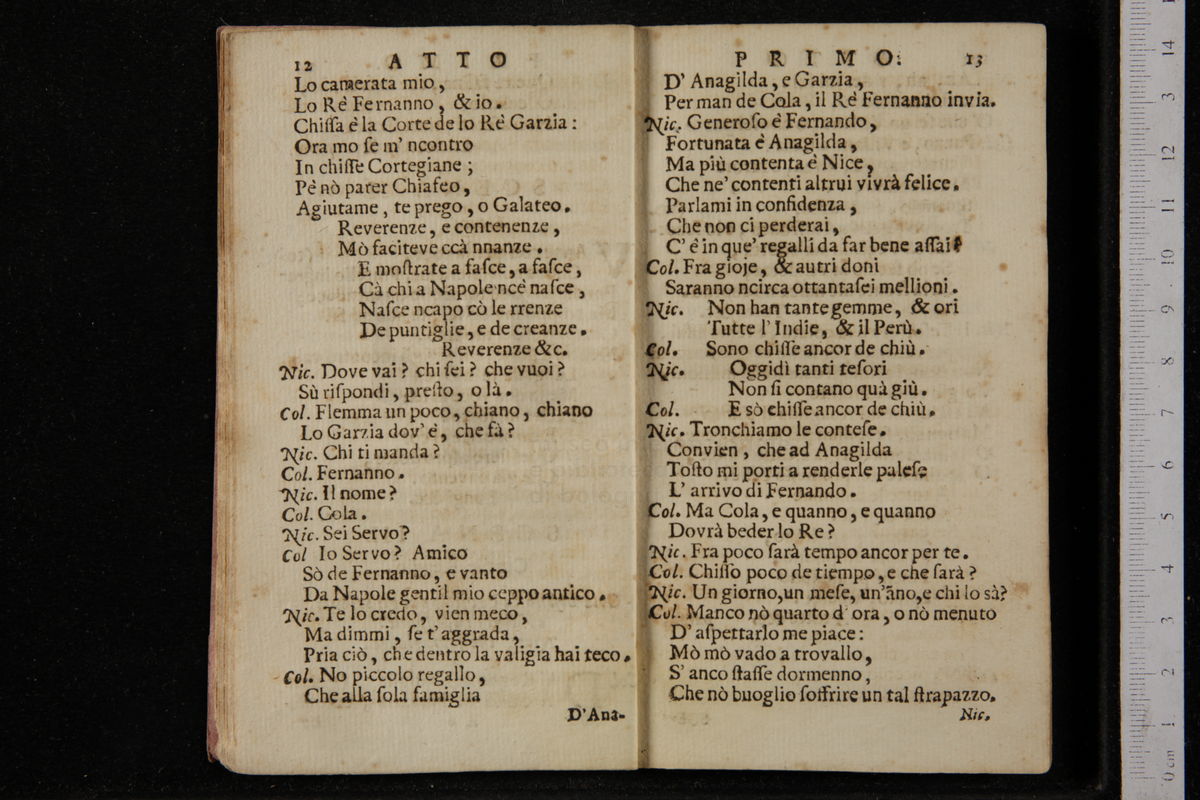 12 ATTO
Lo camerata mio,
Lo Rè Fernanno, & io.
Chiſſa è la Corte de lo Rè Garzia:
Ora mo ſe m' ncontro
In chiſſe Cortegiane;
Pè nò parer Chiafeo,
Agiutame, te prego, o Galateo.
Reverenze, e contenenze,
Mò faciteve ccà nnanze.
E moſtrate a faſce, a faſce,
Cà chi a Napole ncè naſce,
Naſce ncapo cò le rrenze
De puntiglie, e de creanze.
Reverenze &c.
Nic. Dove vai? chi ſei? che vuoi?
Sù riſpondi, preſto, o là.
Col. Flemma un poco, chiano, chiano
Lo Garzia dov' è, che fà?
Nic. Chi ti manda?
Col. Fernanno.
Nic. Il nome?
Col. Cola.
Nic. Sei Servo?
Col Io Servo? Amico
Sò de Fernanno, e vanto
Da Napole gentil mio ceppo antico.
Nic. Te lo credo, vien meco,
Ma dimmi, ſe t' aggrada,
Pria ciò, che dentro la valigia hai teco.
Col. No piccolo regallo,
Che alla ſola famiglia
D'Ana-
PRIMO. 13
D' Anagilda, e Garzia,
Per man de Cola, il Rè Fernanno invia.
Nic. Generoſo è Fernando,
Fortunata è Anagilda,
Ma più contenta è Nice,
Che ne' contenti altrui vivrà felice.
Parlami in confidenza,
Che non ci perderai,
C' è in que' regalli da far bene aſſai?
Col. Fra gioje, & autri doni
Saranno ncirca ottantaſei mellioni.
Nic. Non han tante gemme, & ori
Tutte l' Indie, & il Perù.
Col. Sono chiſſe ancor de chiù.
Nic. Oggidì tanti teſori
Non ſi contano quà giù.
Col. E sò chiſſe ancor de chiù.
Nic. Tronchiamo le conteſe.
Convien, che ad Anagilda
Toſto mi porti a renderle paleſe
L' arrivo di Fernando.
Col. Ma Cola, e quanno, e quanno
Dovrà beder lo Re?
Nic. Fra poco ſarà tempo ancor per te.
Col. Chiſſo poco de tiempo, e che ſarà?
Nic. Un giorno, un meſe, un'ãno, e chi lo sà?
Col. Manco nò quarto d' ora, o nò menuto
D' aſpettarlo me piace:
Mò mò vado a trovallo,
S' anco ſtaſſe dormenno,
Che nò buoglio ſoffrire un tal ſtrapazzo.
Nic.